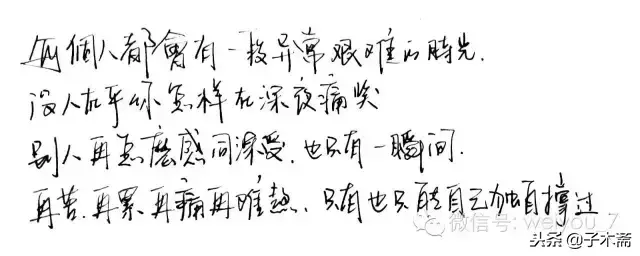 每個人都會有一段异常艰难的時光.
没人在乎你怎样在深夜痛哭
别人再怎麼感同深受.也只有一瞬间.
再苦.再累.再痛再难熬.只有也只能自己独自撑过
微信号: weiyou_7
头条 @子木斋